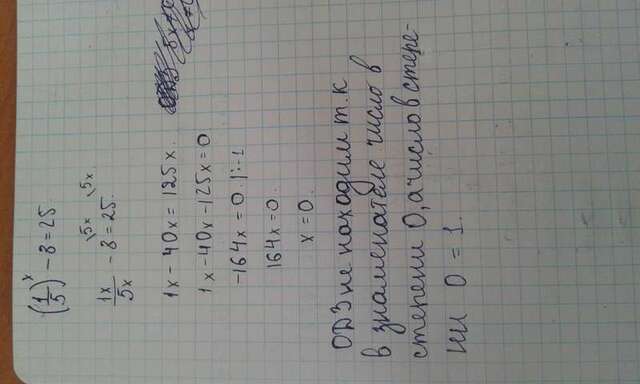 (1/5)^x - 8 = 25
1x/5x - 8 \5x = 25 \5x
1x - 40x = 125x.
1x - 40x - 125x = 0
-164x = 0 |:-1
164x = 0.
x = 0.
ОДЗ не находим т.к
в знаменателе число в
степени 0, а число в стере-
ни 0 = 1.